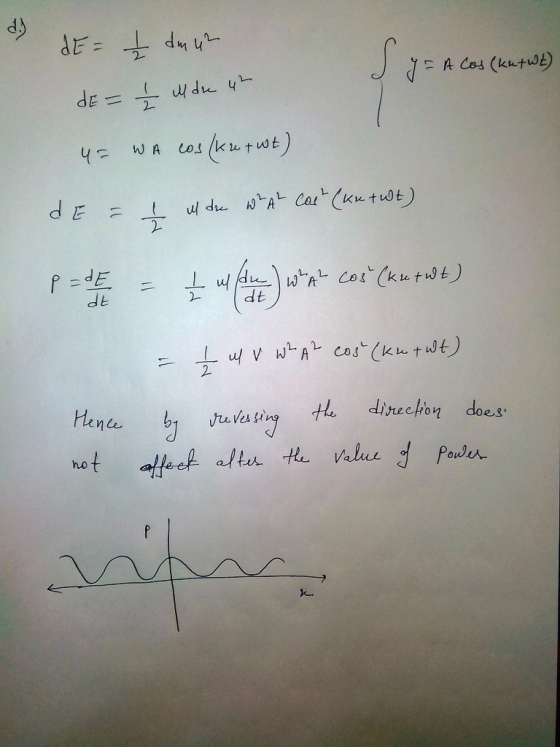 d.)
dE = 1/2 dm u²
y = A cos(kx+wt)
dE = 1/2 μ dx u²
u = wA cos(kx+wt)
dE = 1/2 μ dx w²A² cos²(kx+wt)
P = dE/dt = 1/2 μ (dx/dt) w²A² cos²(kx+wt)
= 1/2 μ v w²A² cos²(kx+wt)
Hence by reversing the direction does
not affect alter the value of power
P
x